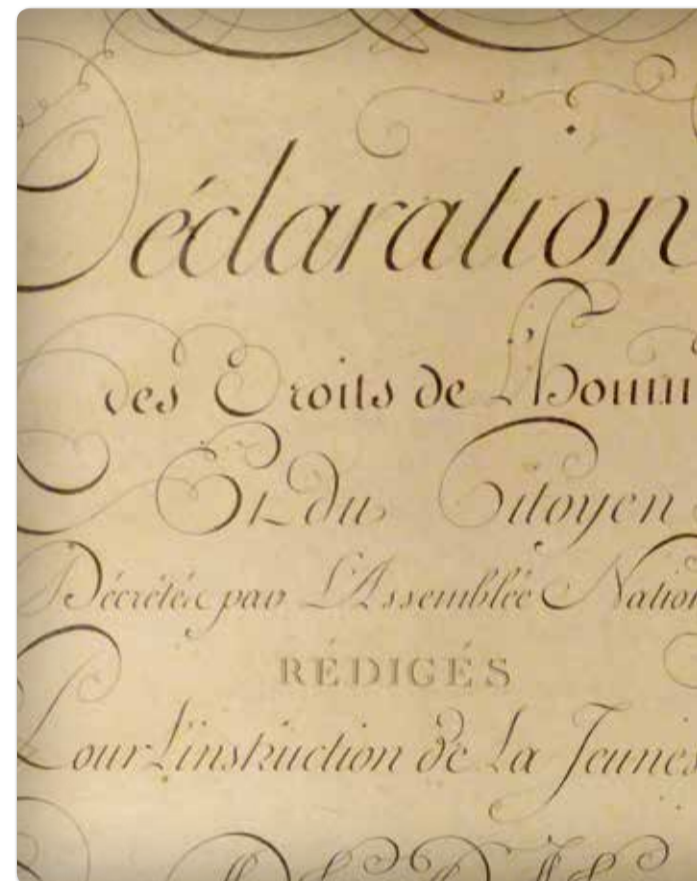 Déclaration
des Droits de L'homm
Et du Citoyen
Décrétés par L'Assemblée Nation
RÉDIGÉS
Pour L'instruction de La Jeunes